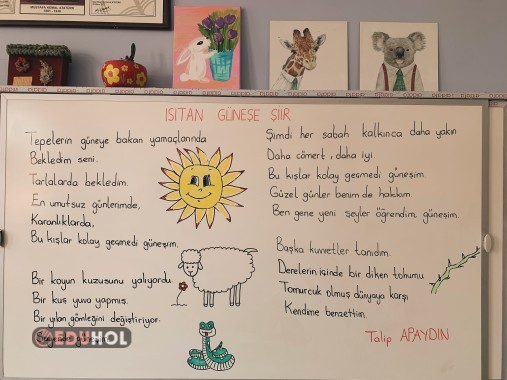 MUSTAFA KEMAL ATATÜRK
1881 - 1938
ISITAN GÜNEŞE ŞİİR
Tepelerin güneye bakan yamaçlarında
Bekledim seni.
Tarlalarda bekledim.
En umutsuz günlerimde,
Karanlıklarda,
Bu kışlar kolay geçmedi güneşim.
Bir koyun kuzusunu yalıyordu
Bir kuş yuva yapmış.
Bir yılan gömleğini değiştiriyor.
güneşim
Şimdi her sabah kalkınca daha yakın
Daha cömert, daha iyi.
Bu kışlar kolay geçmedi güneşim.
Güzel günler benim de hakkım.
Ben gene yeni şeyler öğrendim güneşim.
Başka kuvvetler tanıdım.
Derelerin içinde bir diken tohumu
Tomurcuk olmuş dünyaya karşı
Kendime benzettim.
Talip APAYDIN
EDUHOL